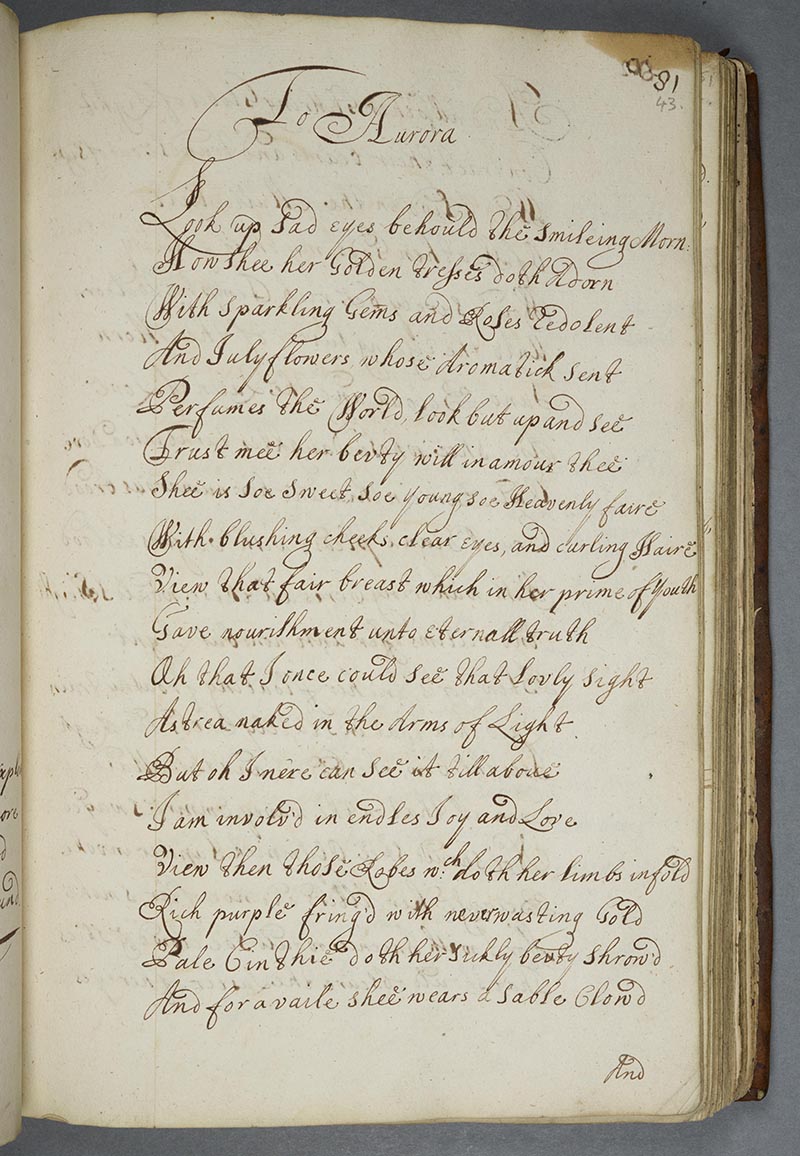 81
43.
To Aurora
Look up Sad eyes behould the Smileing Morn:
How Shee her Golden tresses doth Adorn
With Sparkling Gems and Roses Redolent
And July flowers, whose Aromatick Sent
Perfumes the World, look but up and See
Trust mee her bevty will inamour thee
Shee is Soe Sweet, Soe young Soe Heavenly faire
With blushing cheeks, clear eyes, and curling Haire
View that fair breast which in her prime of Youth
Gave nourishment unto Eternall truth
Oh that I once could See that Lovly Sight
Astrea naked in the Arms of Light.
But oh I nere can See it till above
I am involv'd in endles Joy and Love
View then those Robes wch doth her limbs infold
Rich purple fring'd with never wasting Gold
Pale Cinthie doth her Sickly bevty Shrow'd
And for a vaile Shee wears a Sable Clow'd
And